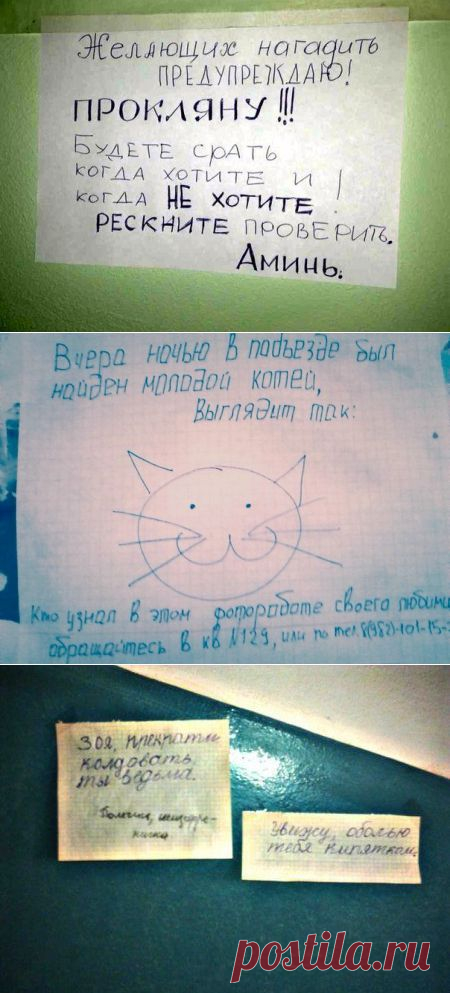 Желающих нагадить
ПРЕДУПРЕЖДАЮ!
ПРОКЛЯНУ!!!
БУДЕТЕ СРАТЬ
КОГДА ХОТИТЕ И
КОГДА НЕ ХОТИТЕ!
РЕСКНИТЕ ПРОВЕРИТЬ.
АМИНЬ.
Вчера ночью в подъезде был
найден молодой котей,
Выглядит так:
Кто узнал в этом фотороботе своего любимц
обращайтесь в кв N129, или по тел. 8(982)-101-15-
Зоя, прекрати
колдовать,
ты ведьма.
Увижу, оболью
тебя кипятком.
postila.ru